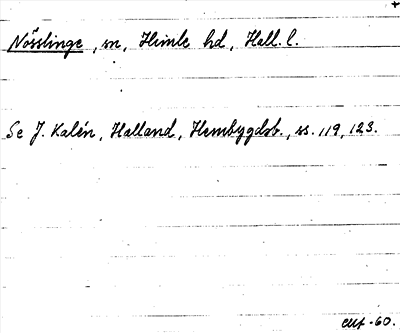 Nösslinge, sn, Himle hd, Hall. l.
Se J. Kalén, Halland, Hembygdsb., ss. 119, 123.
-60.